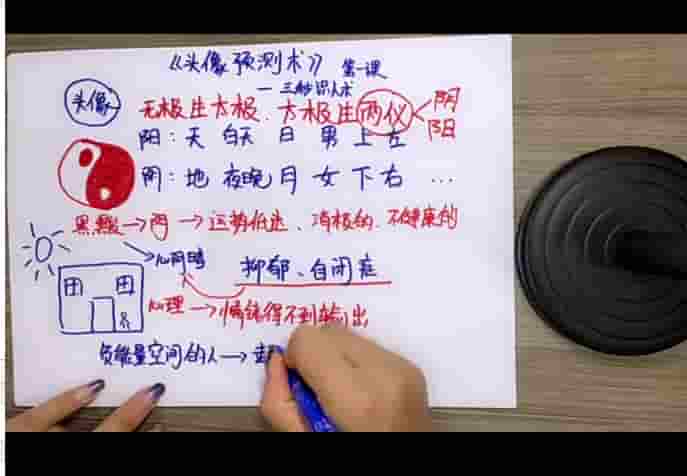 《头像预测术》 第一课
一 三秒识人术
头像
无极生太极、太极生两仪
阴
阳
阳：天 白天 日 男 上 左
阴：地 夜晚 月 女 下 右 …
黑 → 阴 → 运势低迷、消极的、不健康的
心阴暗
抑郁、自闭症
心理 → 情绪得不到输出
负能量空间的人 →